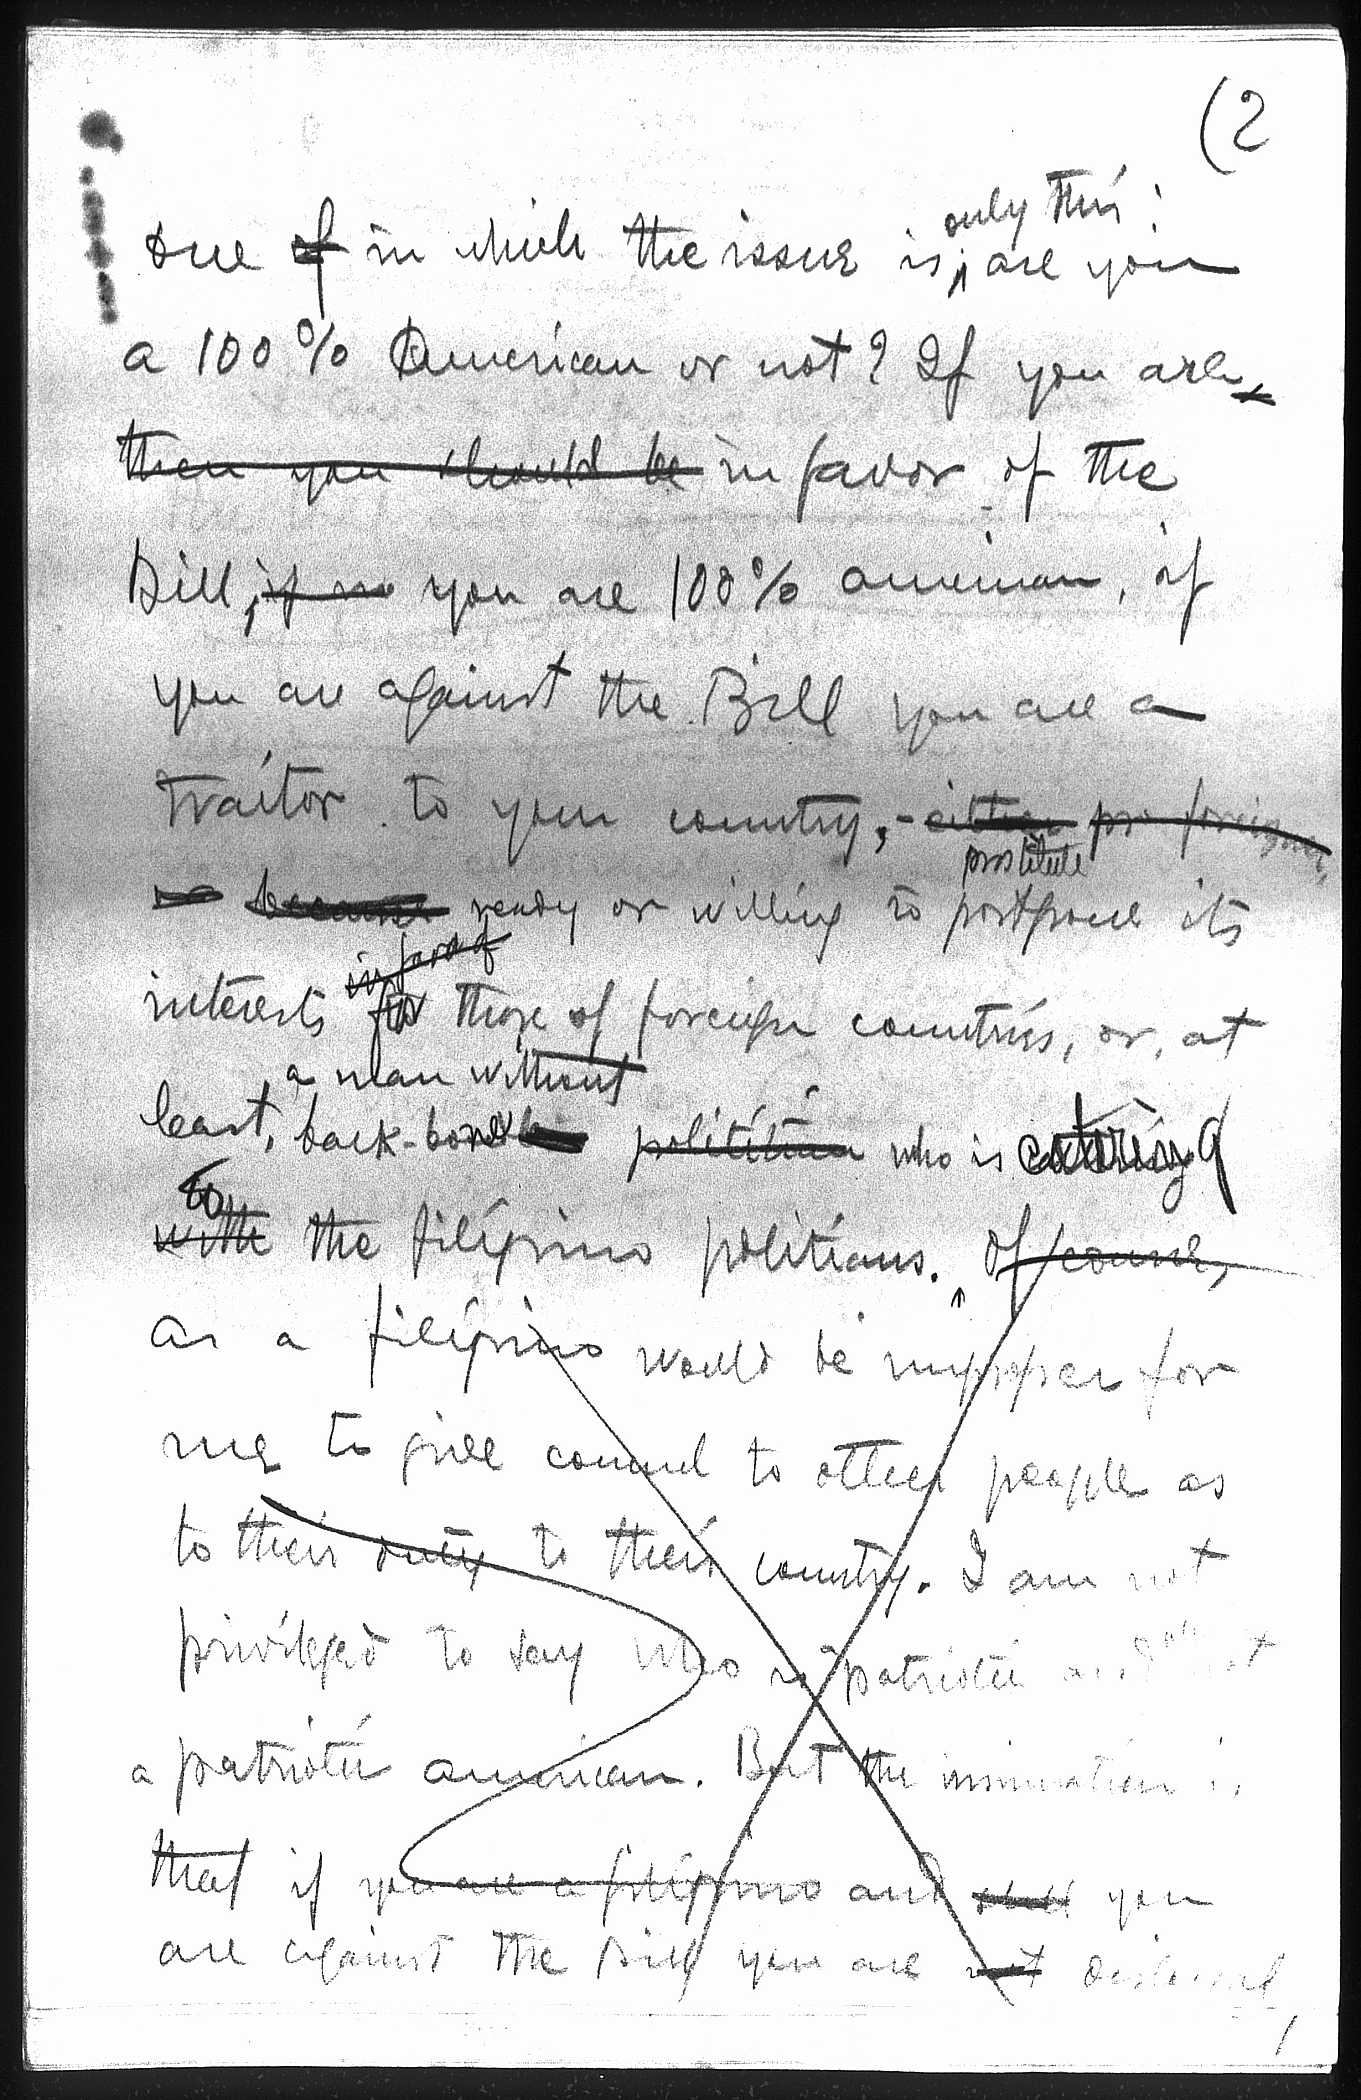 (2
only this:
one of in which the issue is, are you
a 100% American or not? If you are,
then you should be in favor of the
Bill, if no you are 100% american, if
you are against the Bill you are a
traitor to your country, - either pro foreigner,
because ready or willing to postpone its
prostitute
in favor of
interests for those of foreign countries, or, at
a man without
least, back-bone politician who is catering
to
with the filipino politians. Of course,
as a filipino would be improper for
me to give counsel to other people as
to their duty to their country. I am not
privileged to say who is patriotic and not
a patriotic american. But the insinuation is
that if you are a filipino and still you
are against the Bill you are not disloyal